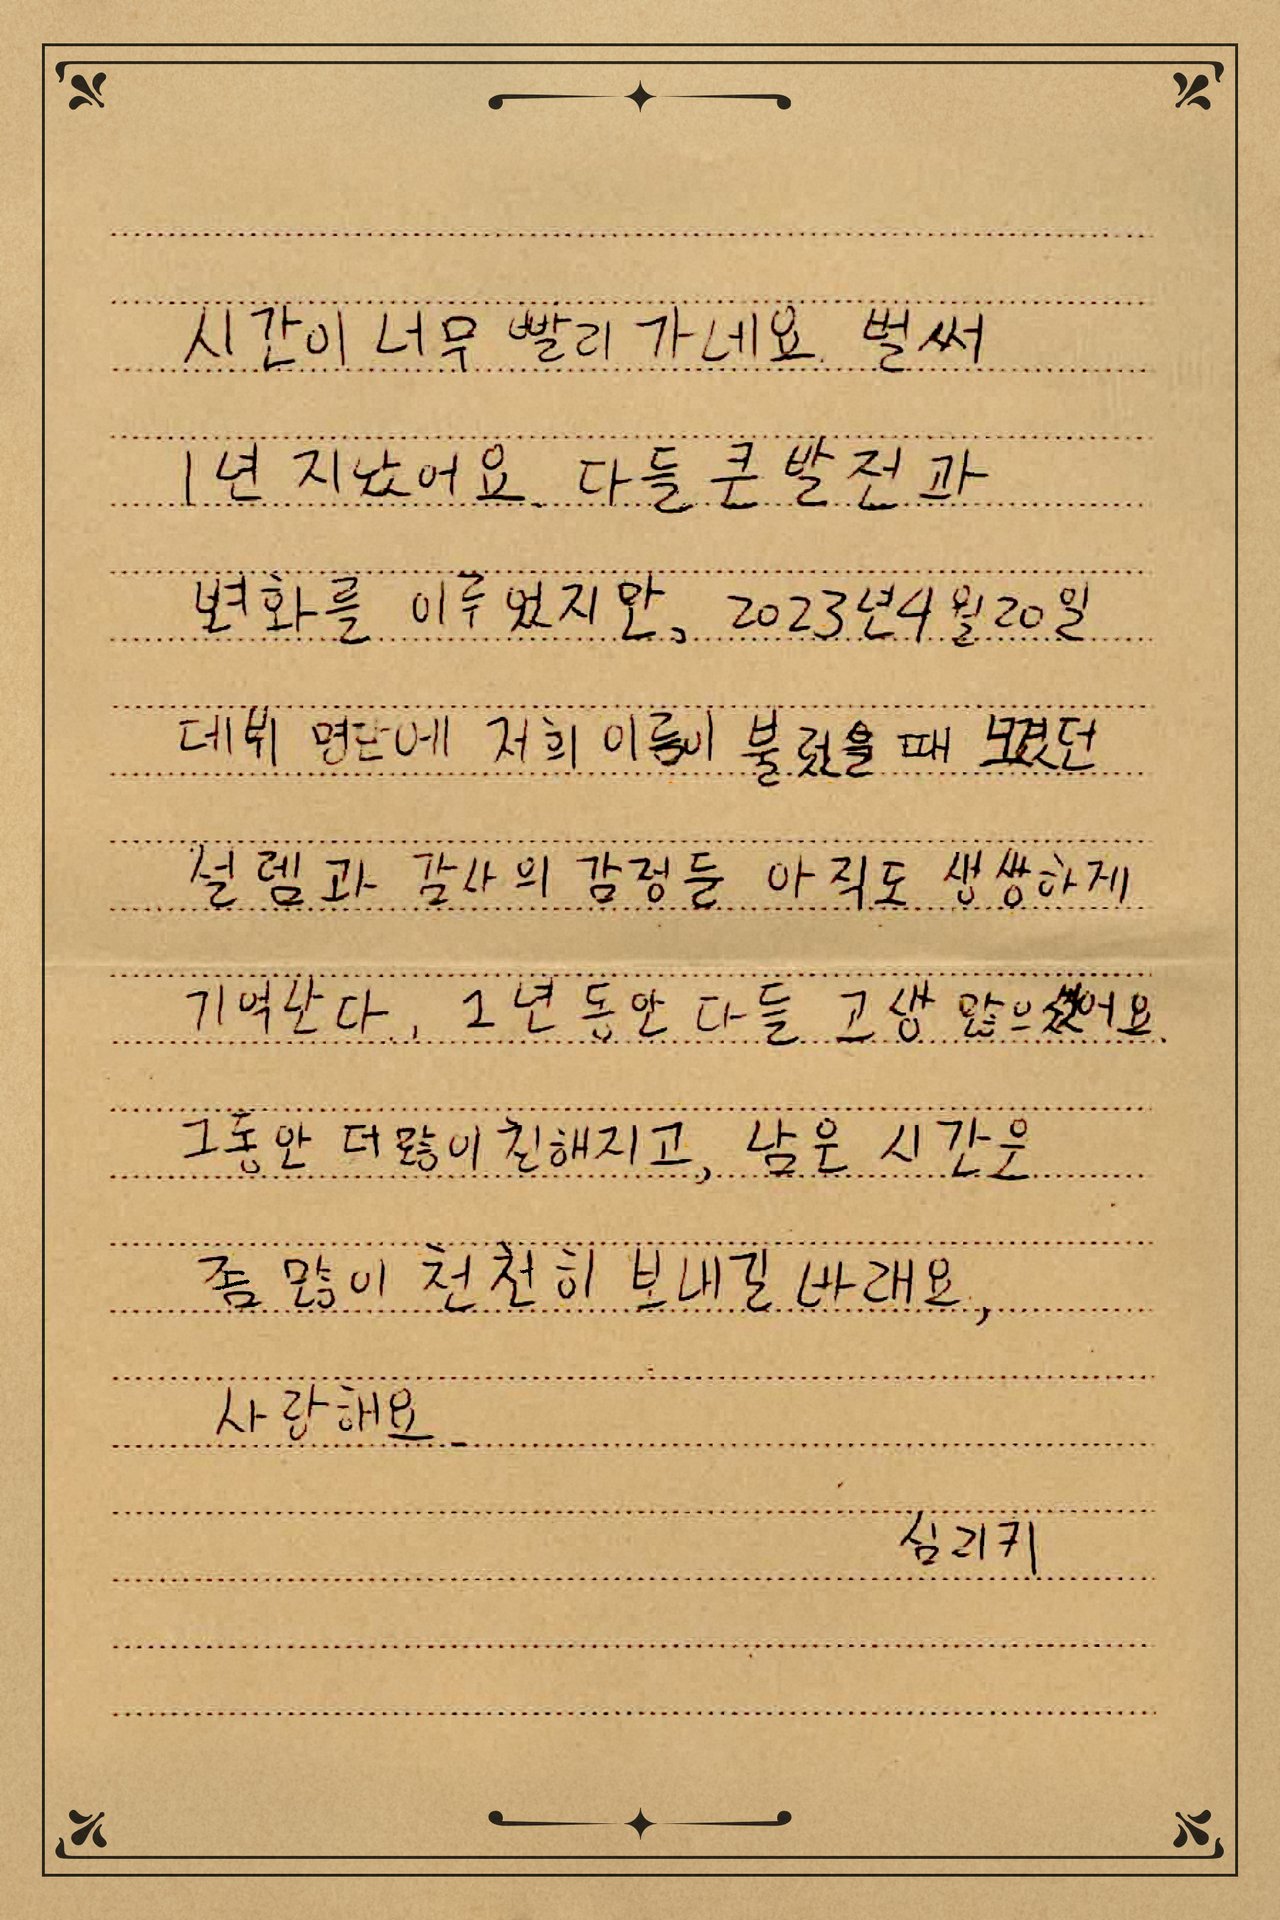 시간이 너무 빨리 가네요. 벌써
1년 지났어요. 다들 큰 발전과
변화를 이루었지만, 2023년4월20일
데뷔 명단에 저희 이름이 불렀을 때 느꼈던
설렘과 감사의 감정들 아직도 생생하게
기억난다. 1년 동안 다들 고생 많으셨어요.
그동안 더 많이 친해지고, 남은 시간은
좀 많이 천천히 보내길 바래요,
사랑해요.
심리키